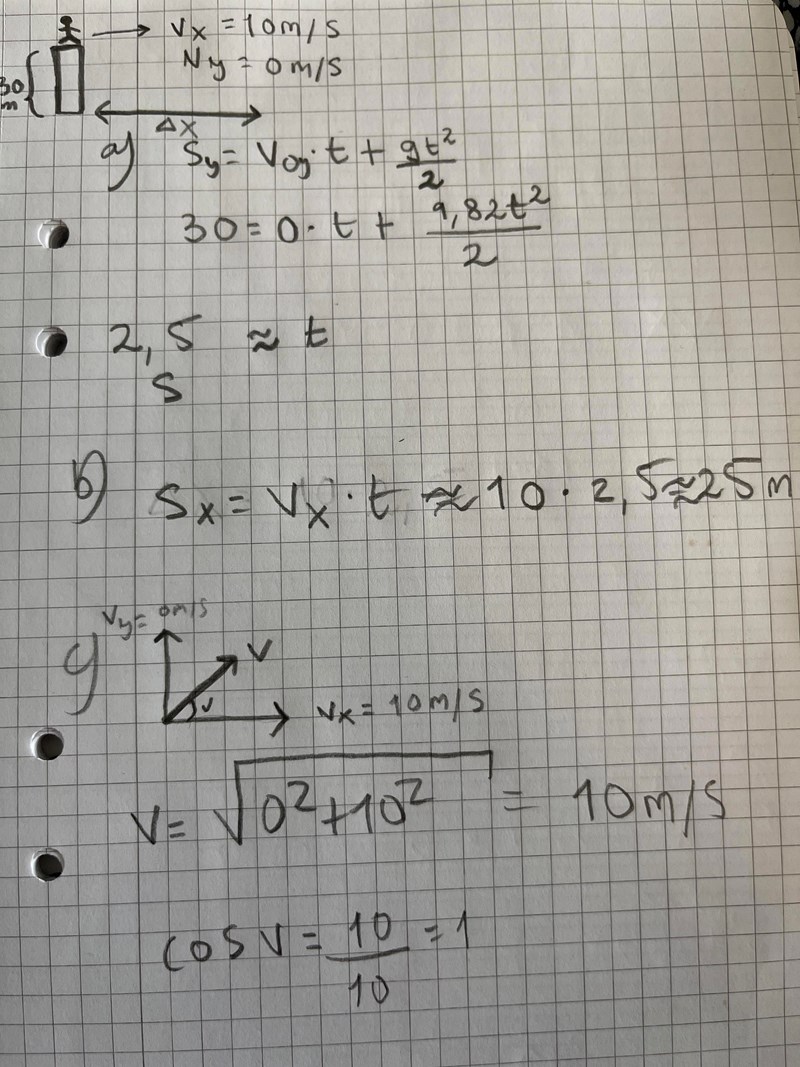 Vx = 10m/s
Vy = 0m/s
30 m
Δx
a) Sy = Voy · t + gt²/2
30 = 0 · t + 9,82t²/2
2,5 ≈ t
s
b) Sx = Vx · t ≈ 10 · 2,5 ≈ 25 m
c) Vy = 0m/s
V
v
Vx = 10m/s
V = √(0² + 10²) = 10m/s
cos v = 10/10 = 1